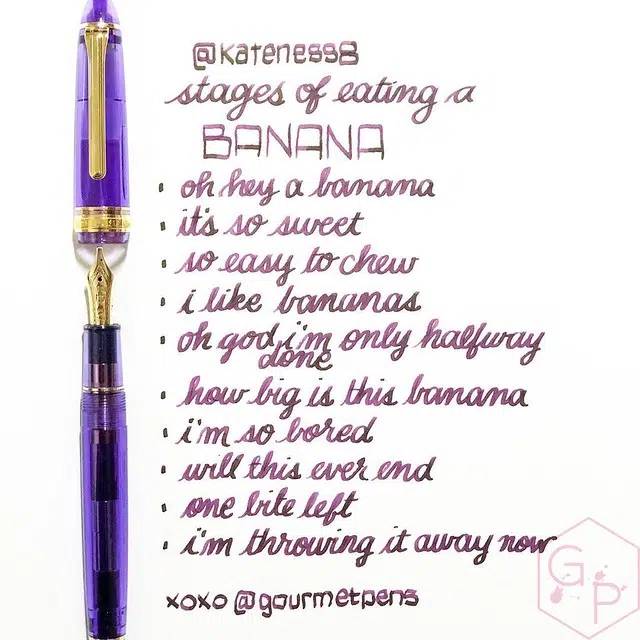 @kateness8
stages of eating a
BANANA
· oh hey a banana
· it's so sweet
· so easy to chew
· i like bananas
· oh god i'm only halfway
done
· how big is this banana
· i'm so bored
· will this ever end
· one bite left
· i'm throwing it away now
xoxo @gourmetpens
G P